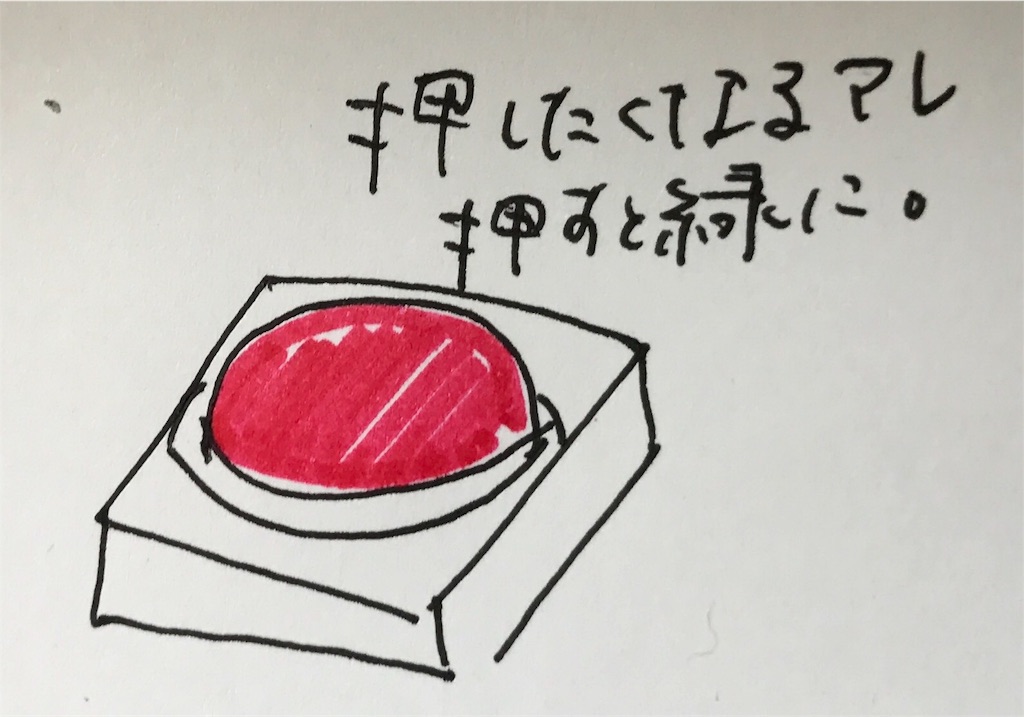 押したくてなるアレ
押すと緑に。